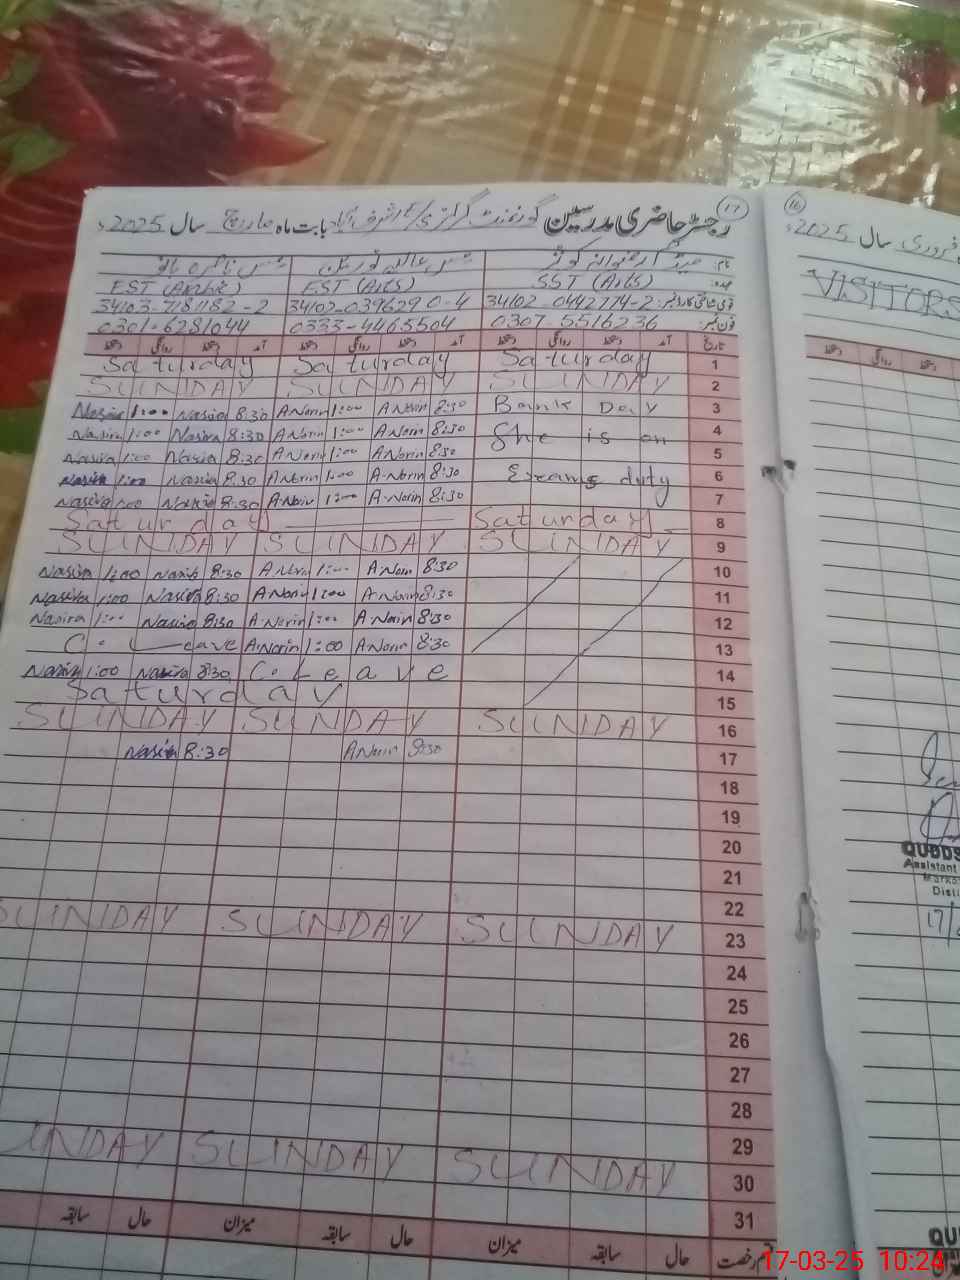 17
رجسٹر حاضری مدرسین گورنمنٹ گرلز بابت ماہ مارچ سال 2025ء
نام:
EST (Arabic) EST (Arts) SST (Arts)
34103-7181182-2 34102-0396290-4 34102-0442774-2 قومی شناختی کارڈ نمبر:
0301-6281044 0333-4465504 0307-5516236 فون نمبر:
دستخط روانگی دستخط آمد دستخط روانگی دستخط آمد دستخط روانگی دستخط آمد تاریخ
Saturday Saturday Saturday 1
SUNDAY SUNDAY SUNDAY 2
Nasira 1:00 Nasira 8:30 A.Norin 1:00 A.Norin 8:30 Bank Day 3
Nasira 1:00 Nasira 8:30 A.Norin 1:00 A.Norin 8:30 She is on 4
Nasira 1:00 Nasira 8:30 A.Norin 1:00 A.Norin 8:30 5
Nasira 1:00 Nasira 8:30 A.Norin 1:00 A.Norin 8:30 Exams duty 6
Nasira 1:00 Nasira 8:30 A.Norin 1:00 A.Norin 8:30 7
Saturday Saturday 8
SUNDAY SUNDAY SUNDAY 9
Nasira 1:00 Nasira 8:30 A.Norin 1:00 A.Norin 8:30 10
Nasira 1:00 Nasira 8:30 A.Norin 1:00 A.Norin 8:30 11
Nasira 1:00 Nasira 8:30 A.Norin 1:00 A.Norin 8:30 12
C. Leave A.Norin 1:00 A.Norin 8:30 13
Nasira 1:00 Nasira 8:30 C. Leave 14
Saturday 15
SUNDAY SUNDAY SUNDAY 16
Nasira 8:30 A.Norin 8:30 17
18
19
20
21
22
SUNDAY SUNDAY SUNDAY 23
24
25
26
27
28
29
UNDAY SUNDAY SUNDAY 30
31
سابقہ حال میزان سابقہ حال میزان سابقہ حال قسم رخصت
16
فروری سال 2025ء
VISITORS
دستخط روانگی دستخط
QUDDS
Assistant
Marka
Dist
17/
QU
17-03-25 10:24